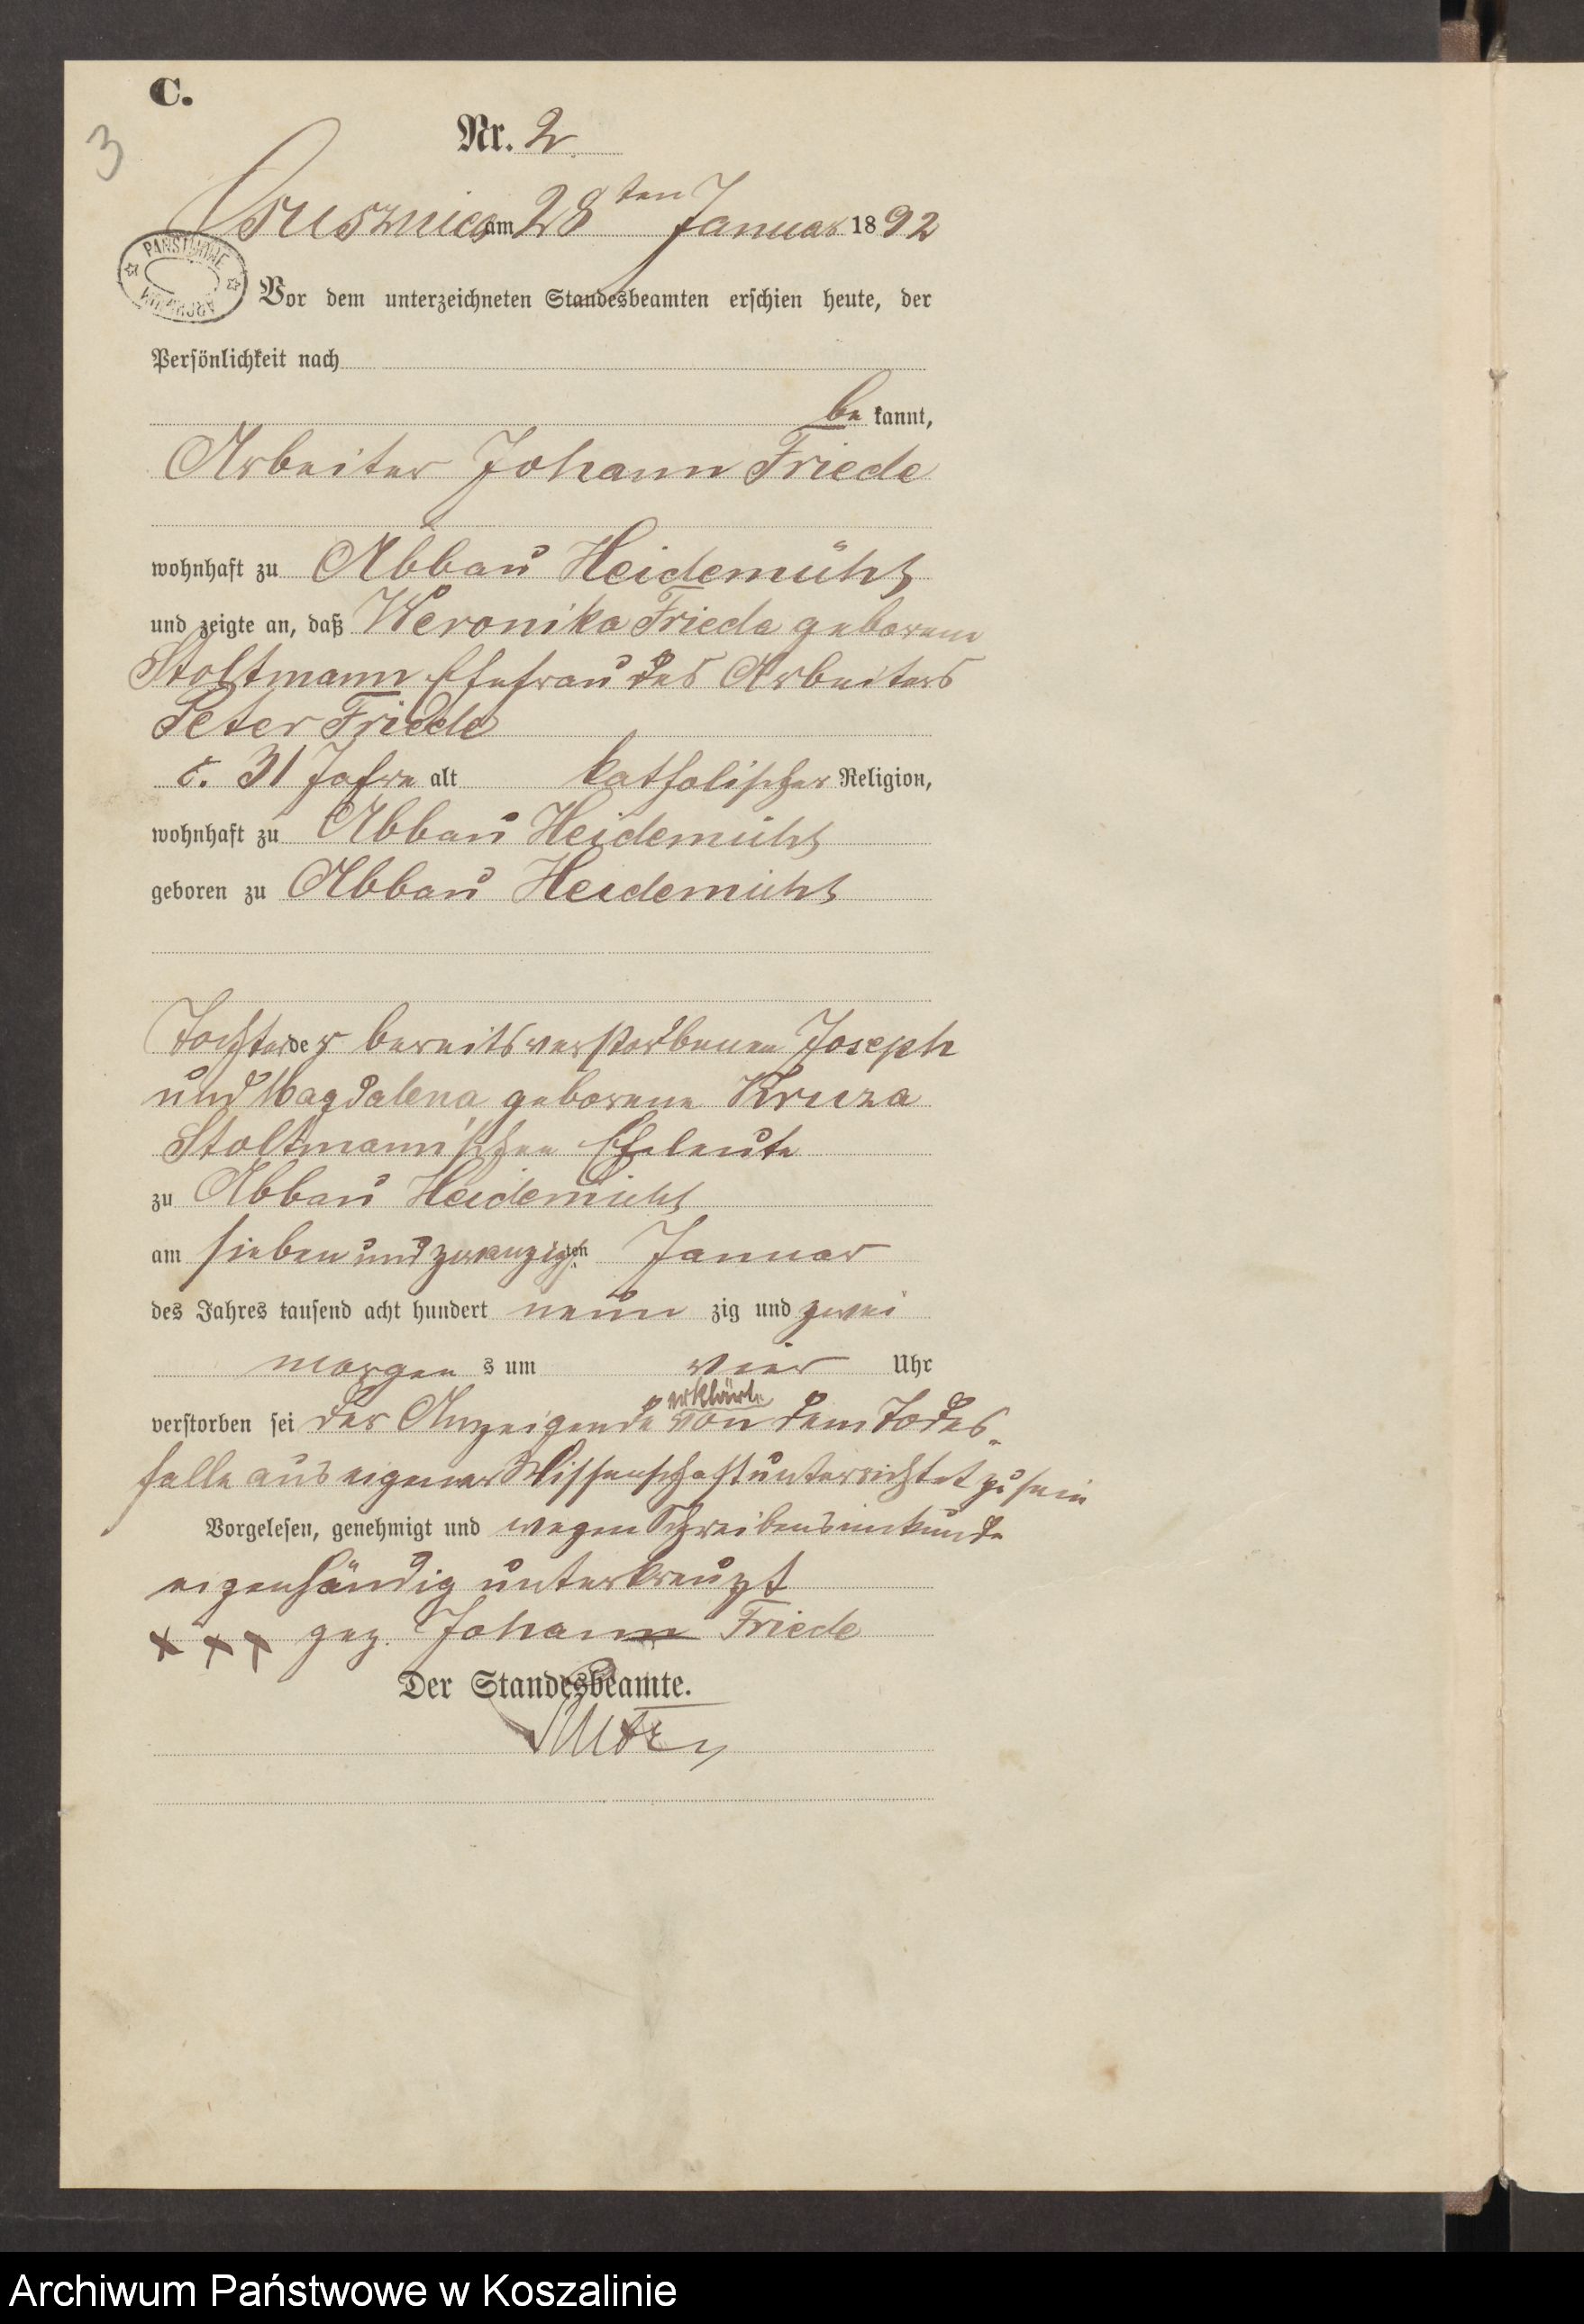 C.
3
Nr. 2
Ossusznica am 28ten Januar 1892
PAŃSTWOWE ARCHIWUM
Vor dem unterzeichneten Standesbeamten erschien heute, der
Persönlichkeit nach
be kannt,
Arbeiter Johann Friede
wohnhaft zu Abbau Heidemühl
und zeigte an, daß Weronika Friede geborene
Stoltmann Ehefrau des Arbeiters
Peter Friede
c. 31 Jahre alt katholischer Religion,
wohnhaft zu Abbau Heidemühl
geboren zu Abbau Heidemühl
Tochter der bereits verstorbenen Joseph
und Magdalena geborene Kruza
Stoltmann'schen Eheleute
zu Abbau Heidemühl
am sieben und zwanzigsten Januar
des Jahres tausend acht hundert neun zig und zwei
morgen s um vier Uhr
erklärte
verstorben sei der Anzeigende von dem Todes-
falle aus eigener Wissenschaft unterrichtet zu sein
Vorgelesen, genehmigt und wegen Schreibensunkunde
eigenhändig unterkreuzt
+ + + gez. Johann Friede
Der Standesbeamte.
Archiwum Państwowe w Koszalinie